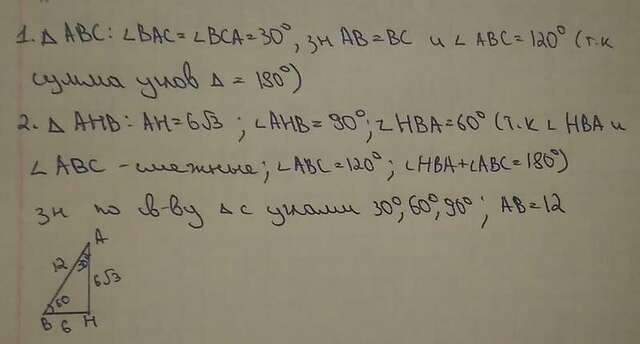 1. Δ ABC: ∠BAC = ∠BCA = 30°, зн AB = BC и ∠ ABC = 120° (т.к
сумма углов Δ = 180°)
2. Δ AHB: AH = 6√3 ; ∠AHB = 90°; ∠HBA = 60° (т.к ∠ HBA и
∠ ABC - смежные; ∠ABC = 120°; ∠HBA + ∠ABC = 180°)
зн по св-ву Δ с углами 30°, 60°, 90°; AB = 12
A
12
30°
6√3
60
B 6 H